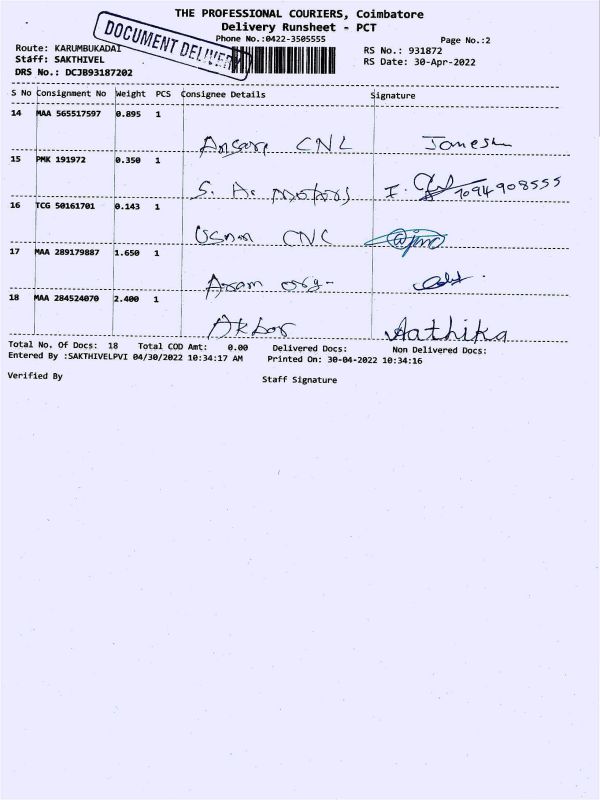 THE PROFESSIONAL COURIERS, Coimbatore
Delivery Runsheet - PCT
DOCUMENT DELIVERY
Phone No.:0422-3505555
Page No.:2
Route: KARUMBUKADAI
RS No.: 931872
Staff: SAKTHIVEL
RS Date: 30-Apr-2022
DRS No.: DCJB93187202
S No Consignment No Weight PCS Consignee Details Signature
14 MAA 565517597 0.895 1
Ansare CNC
15 PMK 191972 0.350 1
S. A. Motors 7094908555
16 TCG 50161701 0.143 1
CNC
17 MAA 289179887 1.650 1
18 MAA 284524070 2.400 1
Akbar Aathika
Total No. Of Docs: 18 Total COD Amt: 0.00 Delivered Docs: Non Delivered Docs:
Entered By :SAKTHIVELPVI 04/30/2022 10:34:17 AM Printed On: 30-04-2022 10:34:16
Verified By Staff Signature